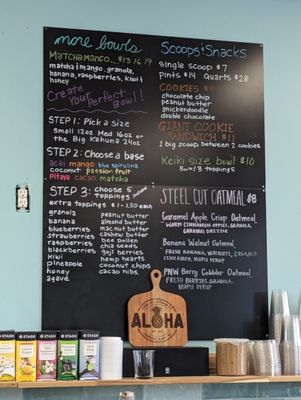 more bowls
MATCHAMANGO...$13 16 19
matcha+mango, granola,
banana, raspberries, kiwi +
honey
Create
Your Perfect Bowl!
STEP 1: Pick a Size
Small 12oz Med 16oz or
the Big Kahuna 24oz
STEP 2: Choose a base
acai mango blue spirulina
coconut passion fruit
Pitaya cacao matcha
STEP 3: choose 5 toppings
extra toppings $1-1.50 each
granola
banana
blueberries
strawberries
raspberries
blackberries
kiwi
pineapple
honey
agave
peanut butter
almond butter
macnut butter
cashew butter
bee pollen
chia seeds
goji berries
hemp hearts
coconut chips
cacao nibs
Scoops + Snacks
single scoop $7
Pints $14 Quarts $28
COOKIES $4
chocolate chip
peanut butter
snickerdoodle
double chocolate
GIANT COOKIE
SANDWICH $11
1 big scoop between 2 cookies
Keiki size bowl $10
8oz w/3 toppings
STEEL CUT OATMEAL $8
Caramel Apple Crisp Oatmeal
WARM CINNAMON APPLES, GRANOLA,
CARAMEL
Banana Walnut Oatmeal
FRESH BANANA, WALNUTS,
CINNAMON, MAPLE SYRUP
PNW Berry Cobbler Oatmeal
FRESH BERRIES, GRANOLA,
MAPLE SYRUP
ALOHA
STASH
STASH
STASH
STASH